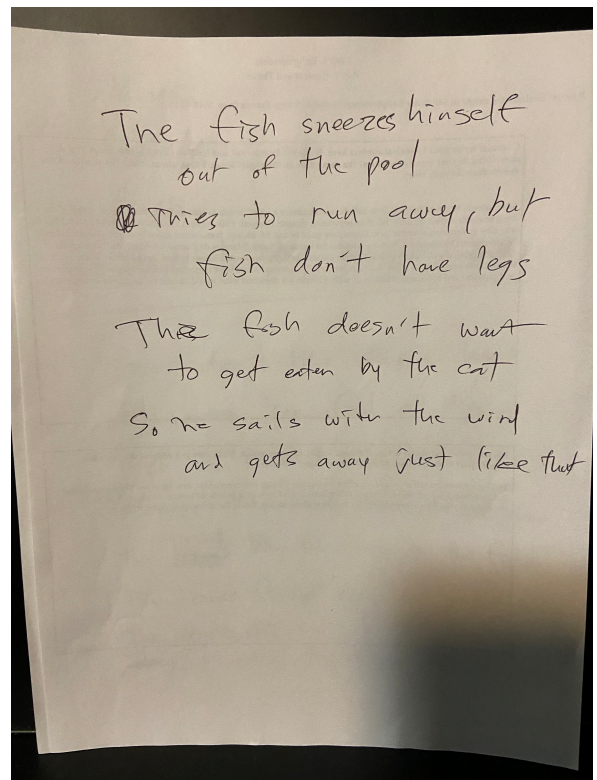 The fish sneezes himself
out of the pool
Tries to run away, but
fish don't have legs
The fish doesn't want
to get eaten by the cat
So he sails with the wind
and gets away just like that